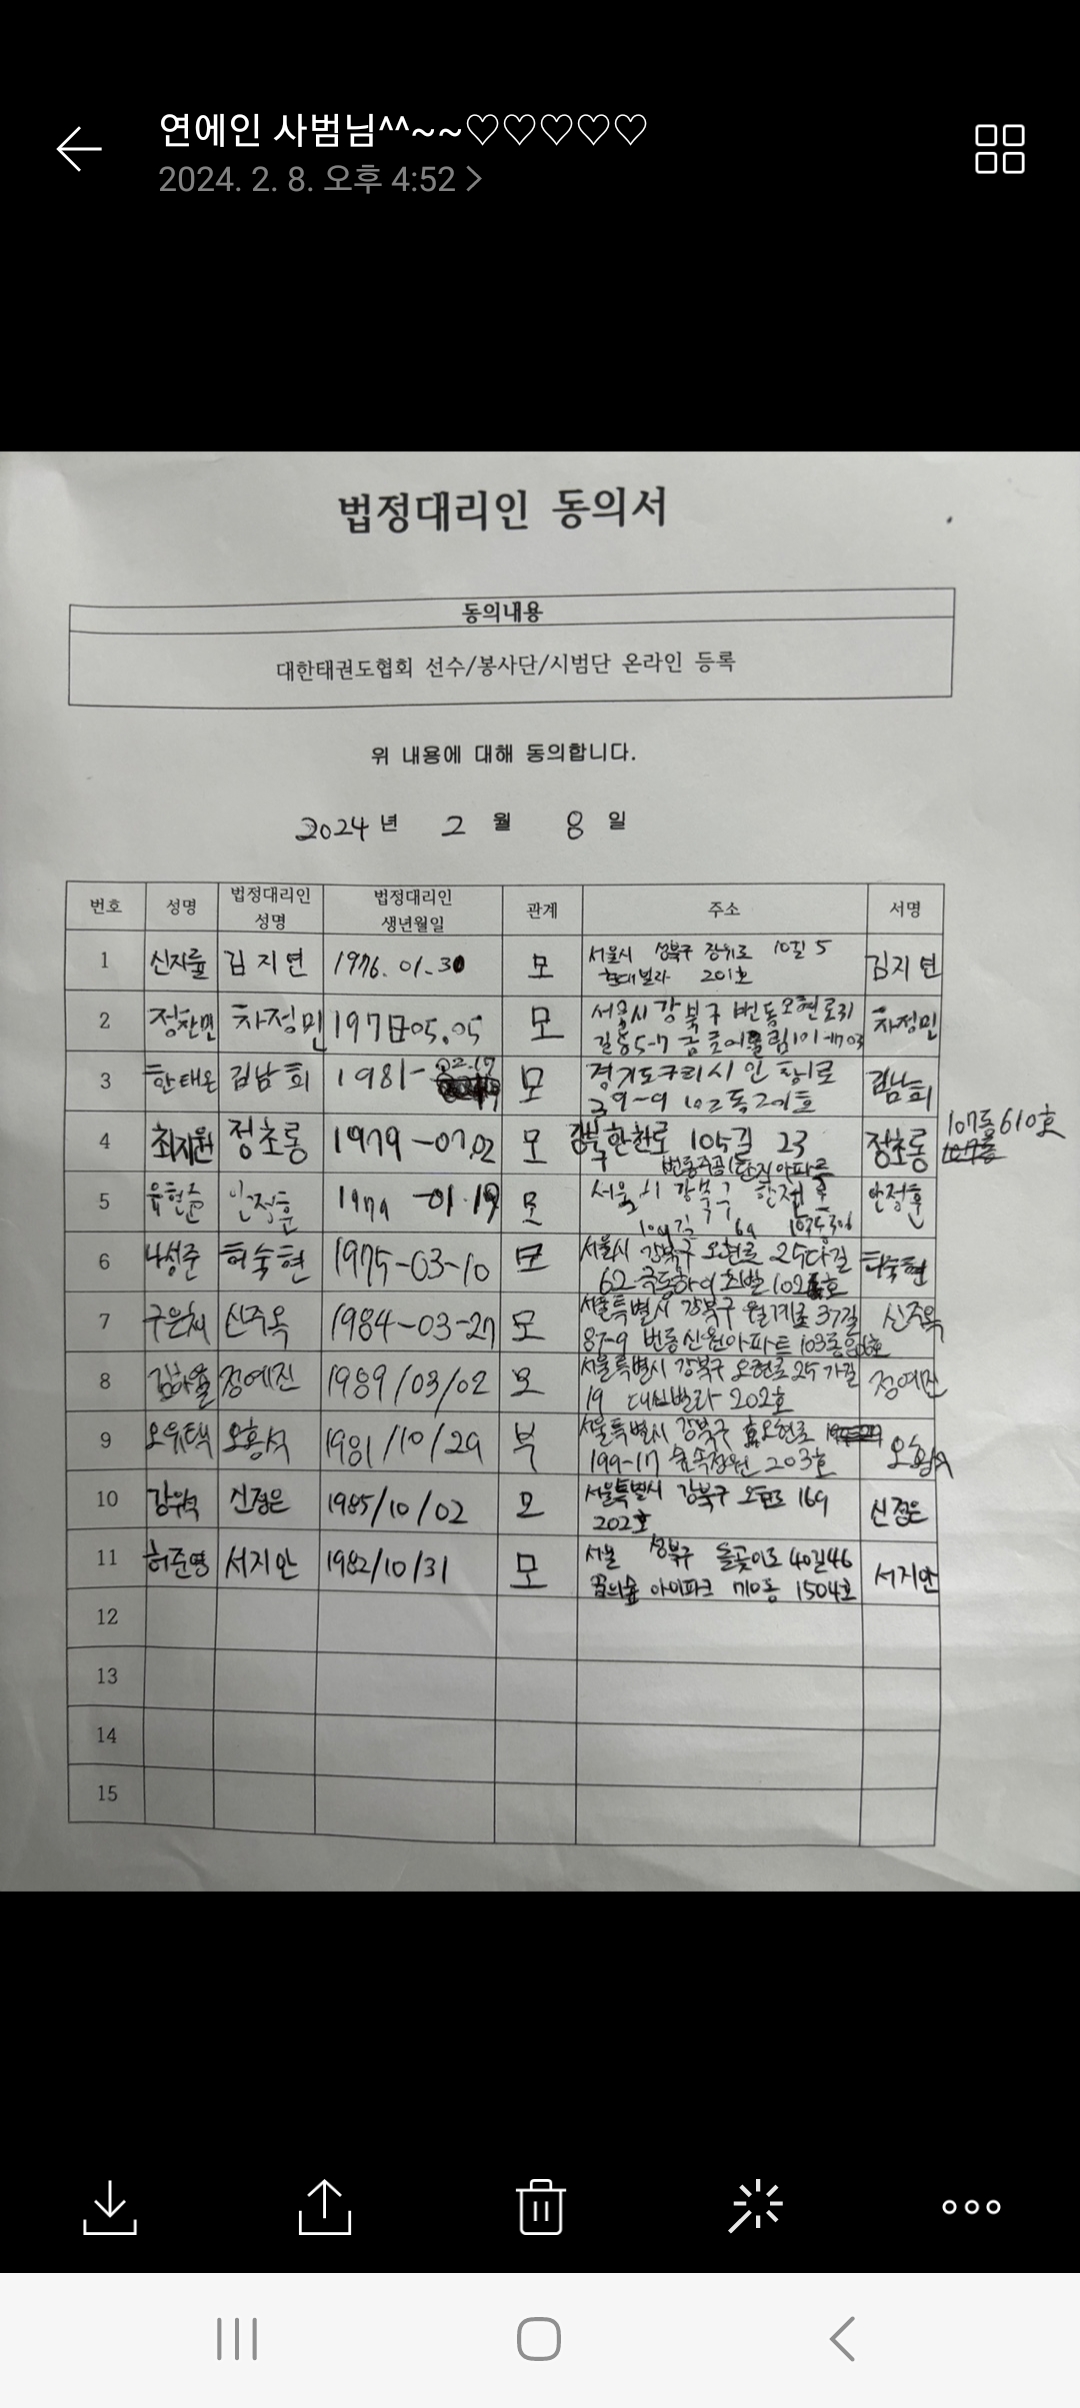 연예인 사범님^^~~♡♡♡♡♡
2024. 2. 8. 오후 4:52
법정대리인 동의서
동의내용
대한태권도협회 선수/봉사단/시범단 온라인 등록
위 내용에 대해 동의합니다.
2024 년 2 월 8 일
번호 성명 법정대리인 성명 법정대리인 생년월일 관계 주소 서명
1 신지율 김지연 1976.01.30 모 서울시 성북구 장위로 10길 5 김지연
현대빌라 201호
2 정찬민 차정민 05.05 모 서울시 강북구 번동 오현로31 차정민
3 한태온 김남희 1981-02.17 모 경기도 구리시 인창1로 김남희
39-9 102동 201호
4 최지원 정초롱 1979-07.02 모 강북 한천로 105길 23 정초롱 107동 610호
번동주공1단지아파트
5 안정훈 1979-01.19 모 서울시 강북구 한천로 안정훈
6 나성준 허숙현 1975-03-10 모 서울시 강북구 오현로 25다길 허숙현
62
7 구은채 신주옥 1984-03-27 모 서울특별시 강북구 월계로 37길 신주옥
87-9 번동신원아파트 103동
8 정예진 1989/03/02 모 서울특별시 강북구 오현로25가길 정예진
19 대신빌라 202호
9 오유택 오홍석 1981/10/29 부 서울특별시 강북구 오현로
199-17 숲속정원 203호
10 신정은 1985/10/02 모 서울특별시 강북구 오현로 169 신정은
202호
11 허준영 서지안 1982/10/31 모 서울 성북구 돌곶이로 40길46 서지안
꿈의숲 아이파크 710동 1504호
12
13
14
15